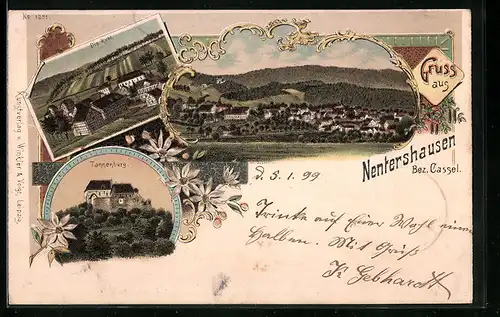 No 1291
Gruss
aus
Nentershausen
Bez. Cassel.
Tannenburg
Kunstverlag v. Winkler & Voigt, Leipzig.
d. 5. 1. 99
Trinke auf Eurer Wohl einen
Halben. Mit Gruß
K. Gebhardt